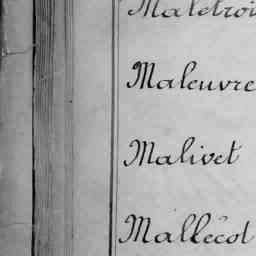 Maletroi
Maleuvre
Malivet
Mallecot